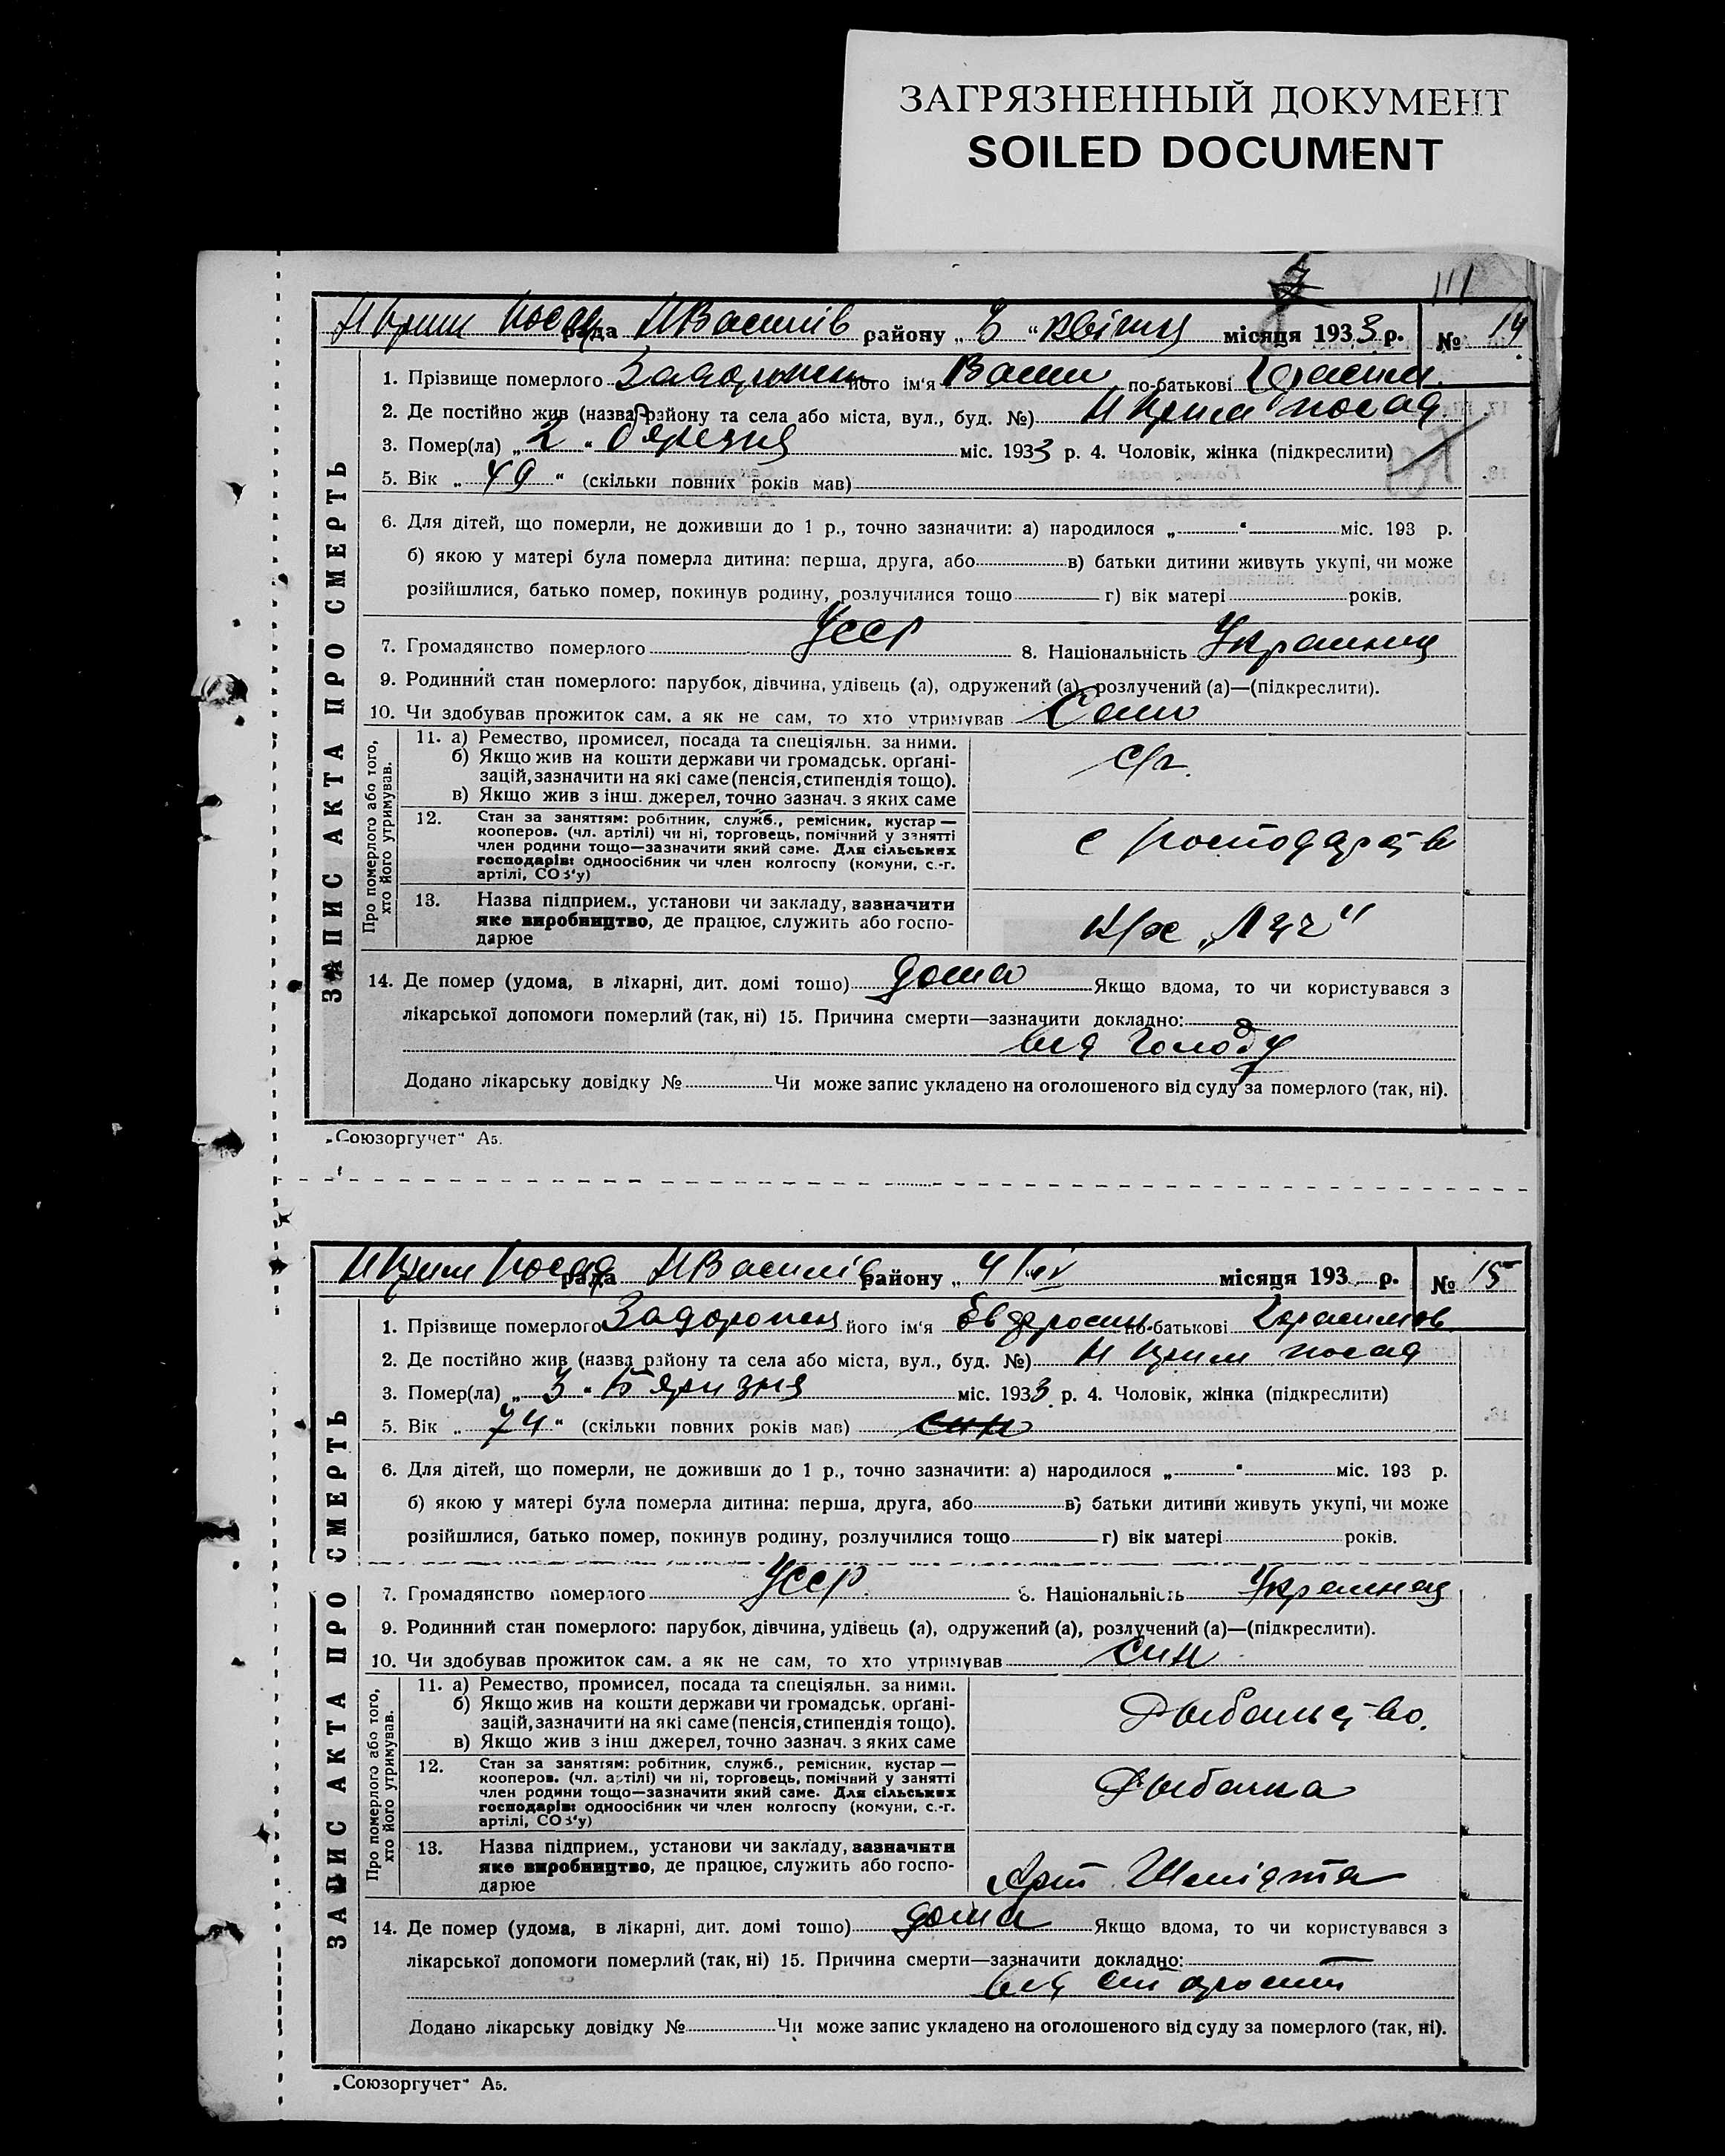 ЗАГРЯЗНЕННЫЙ ДОКУМЕНТ
SOILED DOCUMENT
111
рада НВасилів району „ “ квітня місяця 1933 р. № 14
1. Прізвище померлого його ім'я Васил по-батькові
2. Де постійно жив (назва району та села або міста, вул., буд. №) посад
3. Помер(ла) „ 2 “ міс. 1933 р. 4. Чоловік, жінка (підкреслити)
5. Вік „ 49 “ (скільки повних років мав)
6. Для дітей, що померли, не доживши до 1 р., точно зазначити: а) народилося „ “ міс. 193 р.
б) якою у матері була померла дитина: перша, друга, або в) батьки дитини живуть укупі, чи може
розійшлися, батько помер, покинув родину, розлучилися тощо г) вік матері років.
7. Громадянство померлого Усср 8. Національність
9. Родинний стан померлого: парубок, дівчина, удівець (а), одружений (а), розлучений (а)—(підкреслити).
10. Чи здобував прожиток сам, а як не сам, то хто утримував Само
ЗАПИС АКТА ПРО СМЕРТЬ
Про померлого або того,
хто його утримував.
11. а) Ремество, промисел, посада та спеціяльн. за ними.
б) Якщо жив на кошти держави чи громадськ. орґані-
зацій, зазначити на які саме (пенсія, стипендія тощо).
в) Якщо жив з інш. джерел, точно зазнач. з яких саме
с/г.
12. Стан за заняттям: робітник, служб., ремісник, кустар—
кооперов. (чл. артілі) чи ні, торговець, помічний у занятті
член родини тощо—зазначити який саме. Для сільських
господарів: одноосібник чи член колгоспу (комуни, с.-г.
артілі, СОЗ'у)
13. Назва підприєм., установи чи закладу, зазначити
яке виробництво, де працює, служить або госпо-
дарює
„Луч“
14. Де помер (удома, в лікарні, дит. домі тощо) дома Якщо вдома, то чи користувався з
лікарської допомоги померлий (так, ні) 15. Причина смерти—зазначити докладно:
від голоду
Додано лікарську довідку № Чи може запис укладено на оголошеного від суду за померлого (так, ні).
„Союзоргучет“ А5.
рада НВасилів району „ 4/IV місяця 193 р. № 15
1. Прізвище померлого його ім'я по-батькові
2. Де постійно жив (назва району та села або міста, вул., буд. №) посад
3. Помер(ла) „ 3 “ міс. 1933 р. 4. Чоловік, жінка (підкреслити)
5. Вік „ 74 “ (скільки повних років мав) син
6. Для дітей, що померли, не доживши до 1 р., точно зазначити: а) народилося „ “ міс. 193 р.
б) якою у матері була померла дитина: перша, друга, або в) батьки дитини живуть укупі, чи може
розійшлися, батько помер, покинув родину, розлучилися тощо г) вік матері років.
7. Громадянство померлого Усср. 8. Національність
9. Родинний стан померлого: парубок, дівчина, удівець (а), одружений (а), розлучений (а)—(підкреслити).
10. Чи здобував прожиток сам, а як не сам, то хто утримував син
ЗАПИС АКТА ПРО СМЕРТЬ
Про померлого або того,
хто його утримував.
11. а) Ремество, промисел, посада та спеціяльн. за ними.
б) Якщо жив на кошти держави чи громадськ. орґані-
зацій, зазначити на які саме (пенсія, стипендія тощо).
в) Якщо жив з інш джерел, точно зазнач. з яких саме
12. Стан за заняттям: робітник, служб., ремісник, кустар—
кооперов. (чл. артілі) чи ні, торговець, помічний у занятті
член родини тощо—зазначити який саме. Для сільських
господарів: одноосібник чи член колгоспу (комуни, с.-г.
артілі, СОЗ'у)
13. Назва підприєм., установи чи закладу, зазначити
яке виробництво, де працює, служить або госпо-
дарює
Арт Шмідта
14. Де помер (удома, в лікарні, дит. домі тощо) дома Якщо вдома, то чи користувався з
лікарської допомоги померлий (так, ні) 15. Причина смерти—зазначити докладно:
від
Додано лікарську довідку № Чи може запис укладено на оголошеного від суду за померлого (так, ні).
„Союзоргучет“ А5.